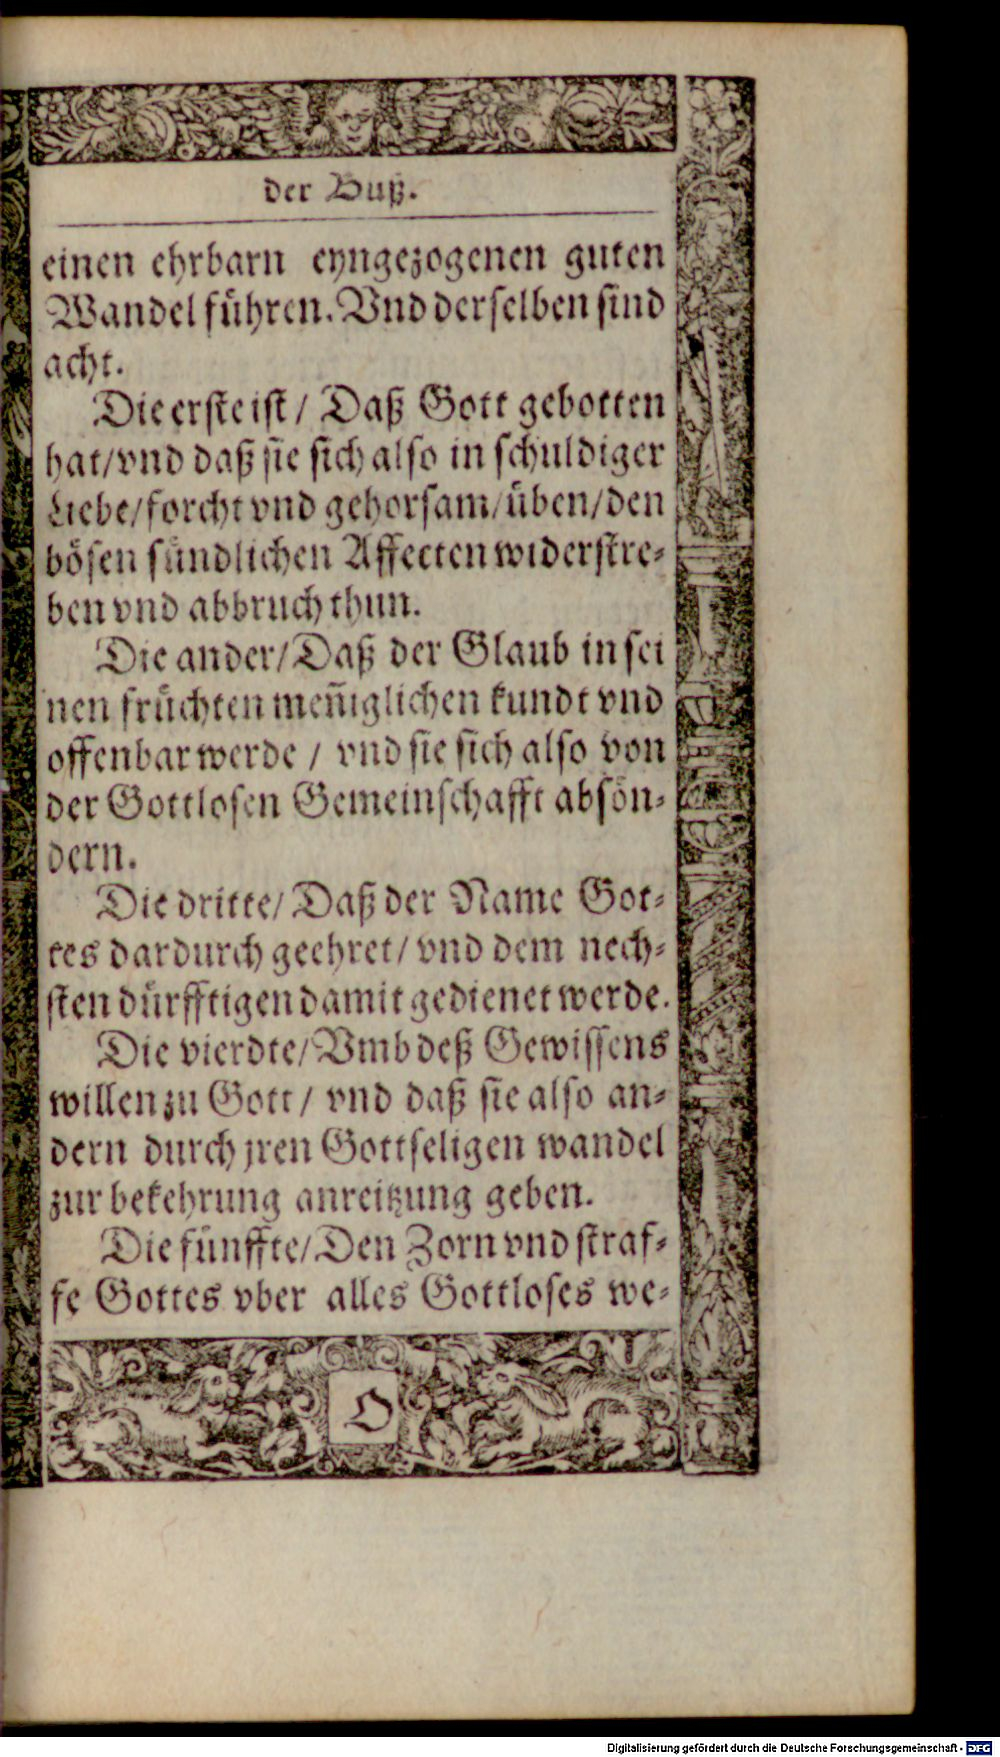 der Buß.
einen ehrbarn eyngezogenen guten
Wandel führen. Vnd derselben sind
acht.
Die erste ist / Daß Gott gebotten
hat/vnd daß sie sich also in schuldiger
Liebe/forcht vnd gehorsam/üben/den
bösen sündlichen Affecten widerstre-
ben vnd abbruch thun.
Die ander/Daß der Glaub in sei
nen früchten meñiglichen kundt vnd
offenbar werde / vnd sie sich also von
der Gottlosen Gemeinschafft absön-
dern.
Die dritte/ Daß der Name Got-
tes dardurch geehret/ vnd dem nech-
sten dürfftigen damit gedienet werde.
Die vierdte/Vmb deß Gewissens
willen zu Gott / vnd daß sie also an-
dern durch jren Gottseligen wandel
zur bekehrung anreitzung geben.
Die fünffte/Den Zorn vnd straf-
fe Gottes vber alles Gottloses we-
O
Digitalisierung gefördert durch die Deutsche Forschungsgemeinschaft - DFG